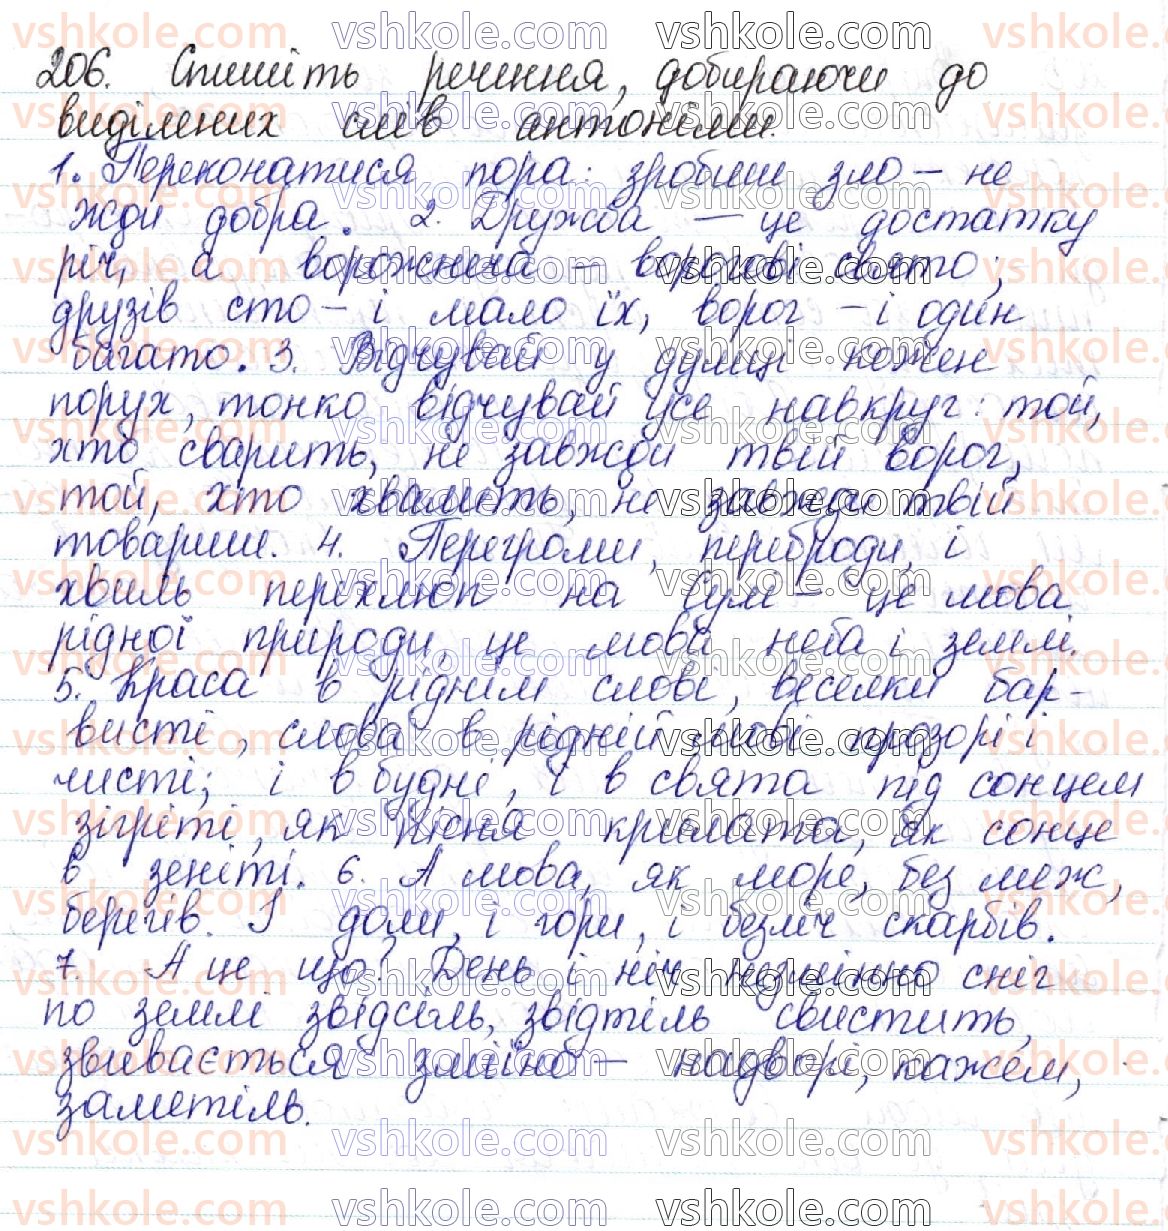 206. Спишіть речення, добираючи до
виділених слів антоніми.
1. Переконатися пора: зробиш зло – не
жди добра. 2. Дружба – це достатку
річ, а ворожнеча – ворогові свято;
друзів сто – і мало їх, ворог – і один
багато. 3. Відчувай у думці кожен
порух, тонко відчувай усе навкруг: той,
хто сварить, не завжди твій ворог,
той, хто хвалить, не завжди твій
товариш. 4. Перегроми, переброди, і
хвиль перехлюп на сум – це мова
рідної природи, це мова неба і землі.
5. Краса в ріднім слові, веселки бар-
висті, слова в рідній мові прозорі і
чисті; і в будні, і в свята під сонцем
зігріті, як пісня крилата, як сонце
в зеніті. 6. А мова, як море, без меж,
берегів. І доли, і гори, і безліч скарбів.
7. А це що? День і ніч незмінно сніг
по землі звідсіль, звідтіль свистить,
звивається зміїно – надворі, кажем,
заметіль.
vshkole.com